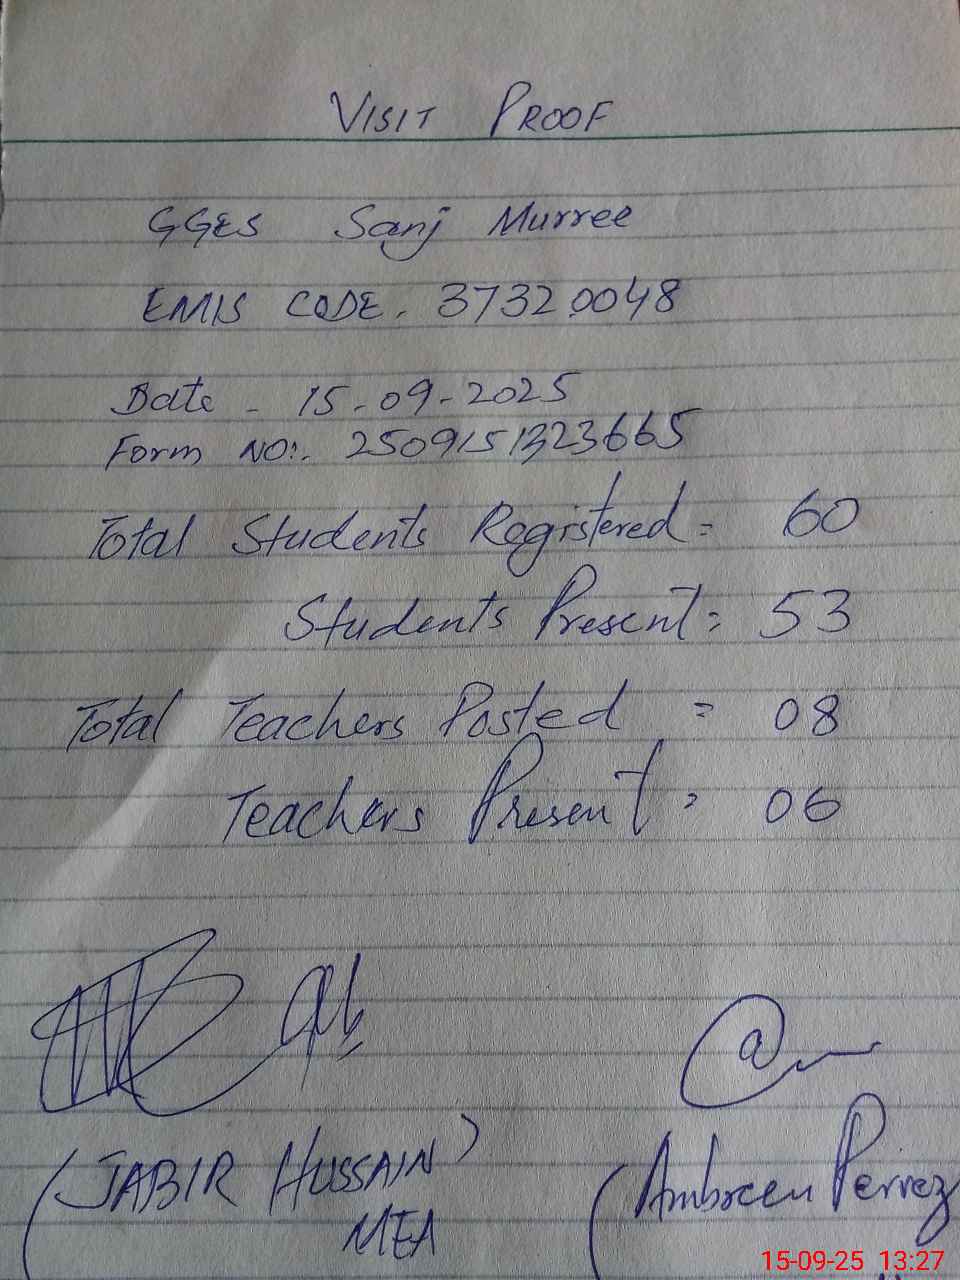 VISIT PROOF
GGES Sanj Murree
EMIS CODE. 37320048
Date - 15-09-2025
Form NO:. 2509151323665
Total Students Registered = 60
Students Present = 53
Total Teachers Posted = 08
Teachers Present = 06
(JABIR HUSSAIN)
MEA
(Ambreen Pervez
15-09-25 13:27